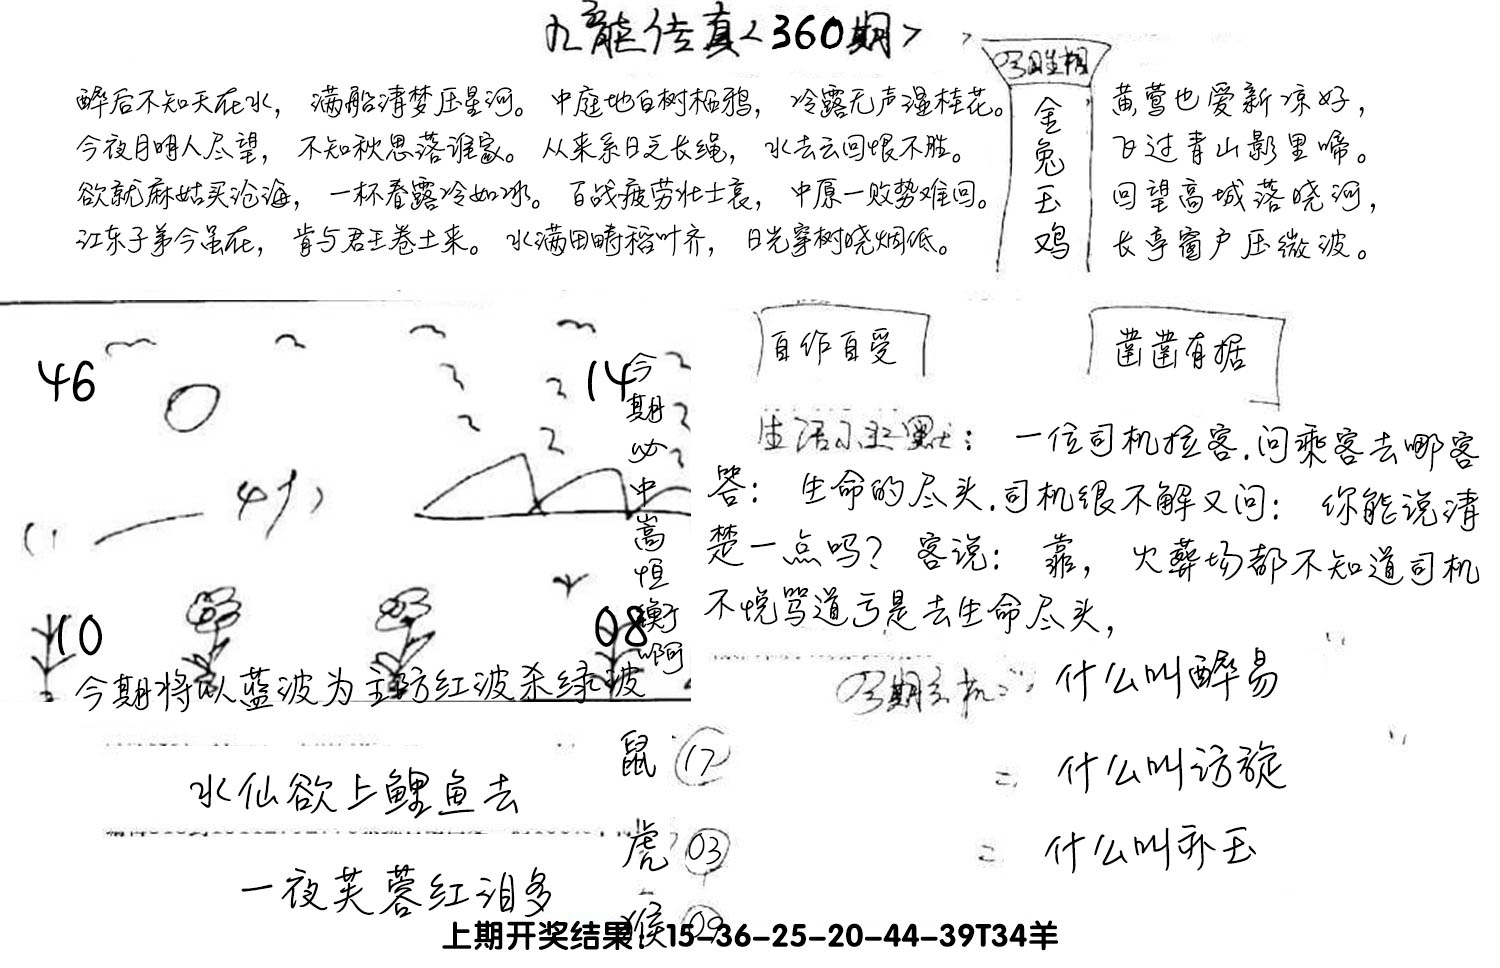 九龙传真<360期>
醉后不知天在水，满船清梦压星河。中庭地白树栖鸦，冷露无声湿桂花。
今夜月明人尽望，不知秋思落谁家。从来系日乏长绳，水去云回恨不胜。
欲就麻姑买沧海，一杯春露冷如冰。百战疲劳壮士哀，中原一败势难回。
江东子弟今虽在，肯与君王卷土来。水满田畴稻叶齐，日光穿树晓烟低。
金兔玉鸡
黄莺也爱新凉好，
飞过青山影里啼。
回望高城落晓河，
长亭窗户压微波。
46
14
10
08
今期必中嵩恒衡啊
今期将以蓝波为主防红波杀绿波
自作自受
凿凿有据
生活小幽默：一位司机拉客.问乘客去哪客
答：生命的尽头.司机很不解又问：你能说清
楚一点吗？客说：靠，火葬场都不知道司机
不悦骂道亏是去生命尽头，
什么叫醉易
什么叫访旋
什么叫亦玉
水仙欲上鲤鱼去
一夜芙蓉红泪多
鼠 17
虎 03
猴 09
上期开奖结果：15-36-25-20-44-39T34羊